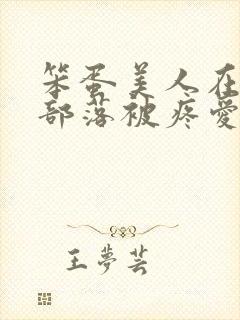 笨蛋美人在
部落被疼愛
王夢芸